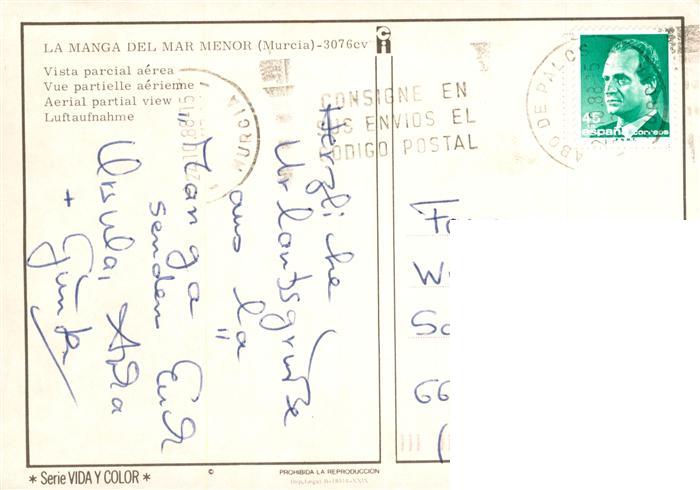 LA MANGA DEL MAR MENOR (Murcia)-3076cv
Vista parcial aérea
Vue partielle aérienne
Aerial partial view
Luftaufnahme
CONSIGNE EN
SUS ENVIOS EL
CODIGO POSTAL
MURCIA
CABO DE PALOS
45
españa correos
Herzliche
Urlaubsgrüße
aus La
"Manga"
senden Euch
Ursula,
+ Günter
W
66
* Serie VIDA Y COLOR *
©
PROHIBIDA LA REPRODUCCION